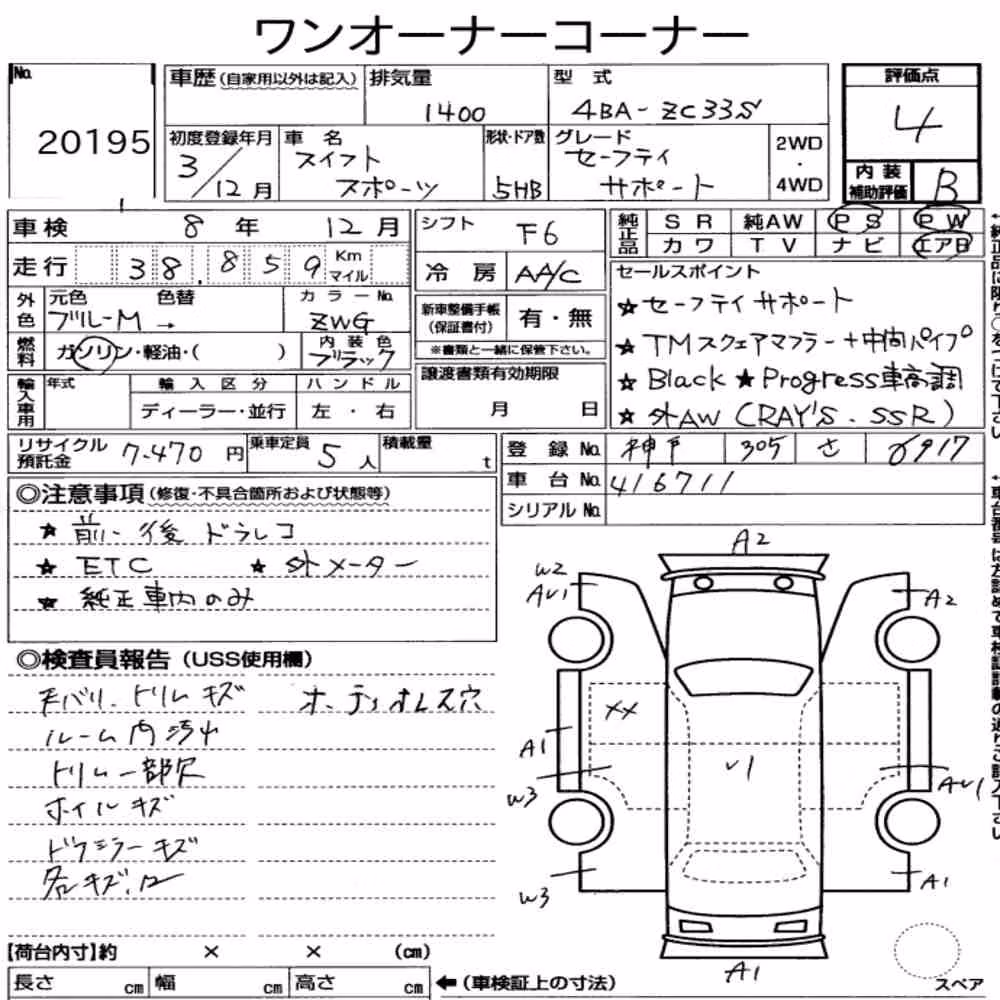 ワンオーナーコーナー
No. 20195
車歴(自家用以外は記入)
排気量 1400
型式 4BA-ZC33S
評価点 4
初度登録年月 3/12月
車名 スイフト スポーツ
形状・ドア数 5HB
グレード セーフティ サポート
2WD・4WD
内装補助評価 B
車検 8年 12月
走行 38,859 Km マイル
外色 元色 色替 ブルーM →
カラーNo. ZWG
燃料 ガソリン・軽油・( )
内装色 ブラック
輸入車用 年式 輸入区分 ハンドル
ディーラー・並行 左・右
シフト F6
冷房 AA/C
新車整備手帳(保証書付) 有・無
※書類と一緒に保管下さい。
譲渡書類有効期限
月 日
純正品 SR 純AW PS PW
カワ TV ナビ エアB
セールスポイント
★セーフティサポート
★TMスクェアマフラー+中間パイプ
★Black ★Progress車高調
★外AW (RAY'S. SSR)
リサイクル預託金 7.470円
乗車定員 5人
積載量 t
登録No. 神戸 305 さ 6917
車台No. 416711
シリアルNo.
◎注意事項(修復・不具合箇所および状態等)
★ 前・後 ドラレコ
★ ETC ★ 外メーター
★ 純正車内のみ
◎検査員報告(USS使用欄)
キバリ.トリムキズ オーディオレス穴
ルーム内汚れ
トリム一部欠
ホイルキズ
ドアミラーキズ
各キズ.
A2
W2
AU1
A2
XX
A1
U1
W3
AU1
W3
A1
A1
【荷台内寸】約 × × (cm)
長さ cm 幅 cm 高さ cm
←(車検証上の寸法)
スペア